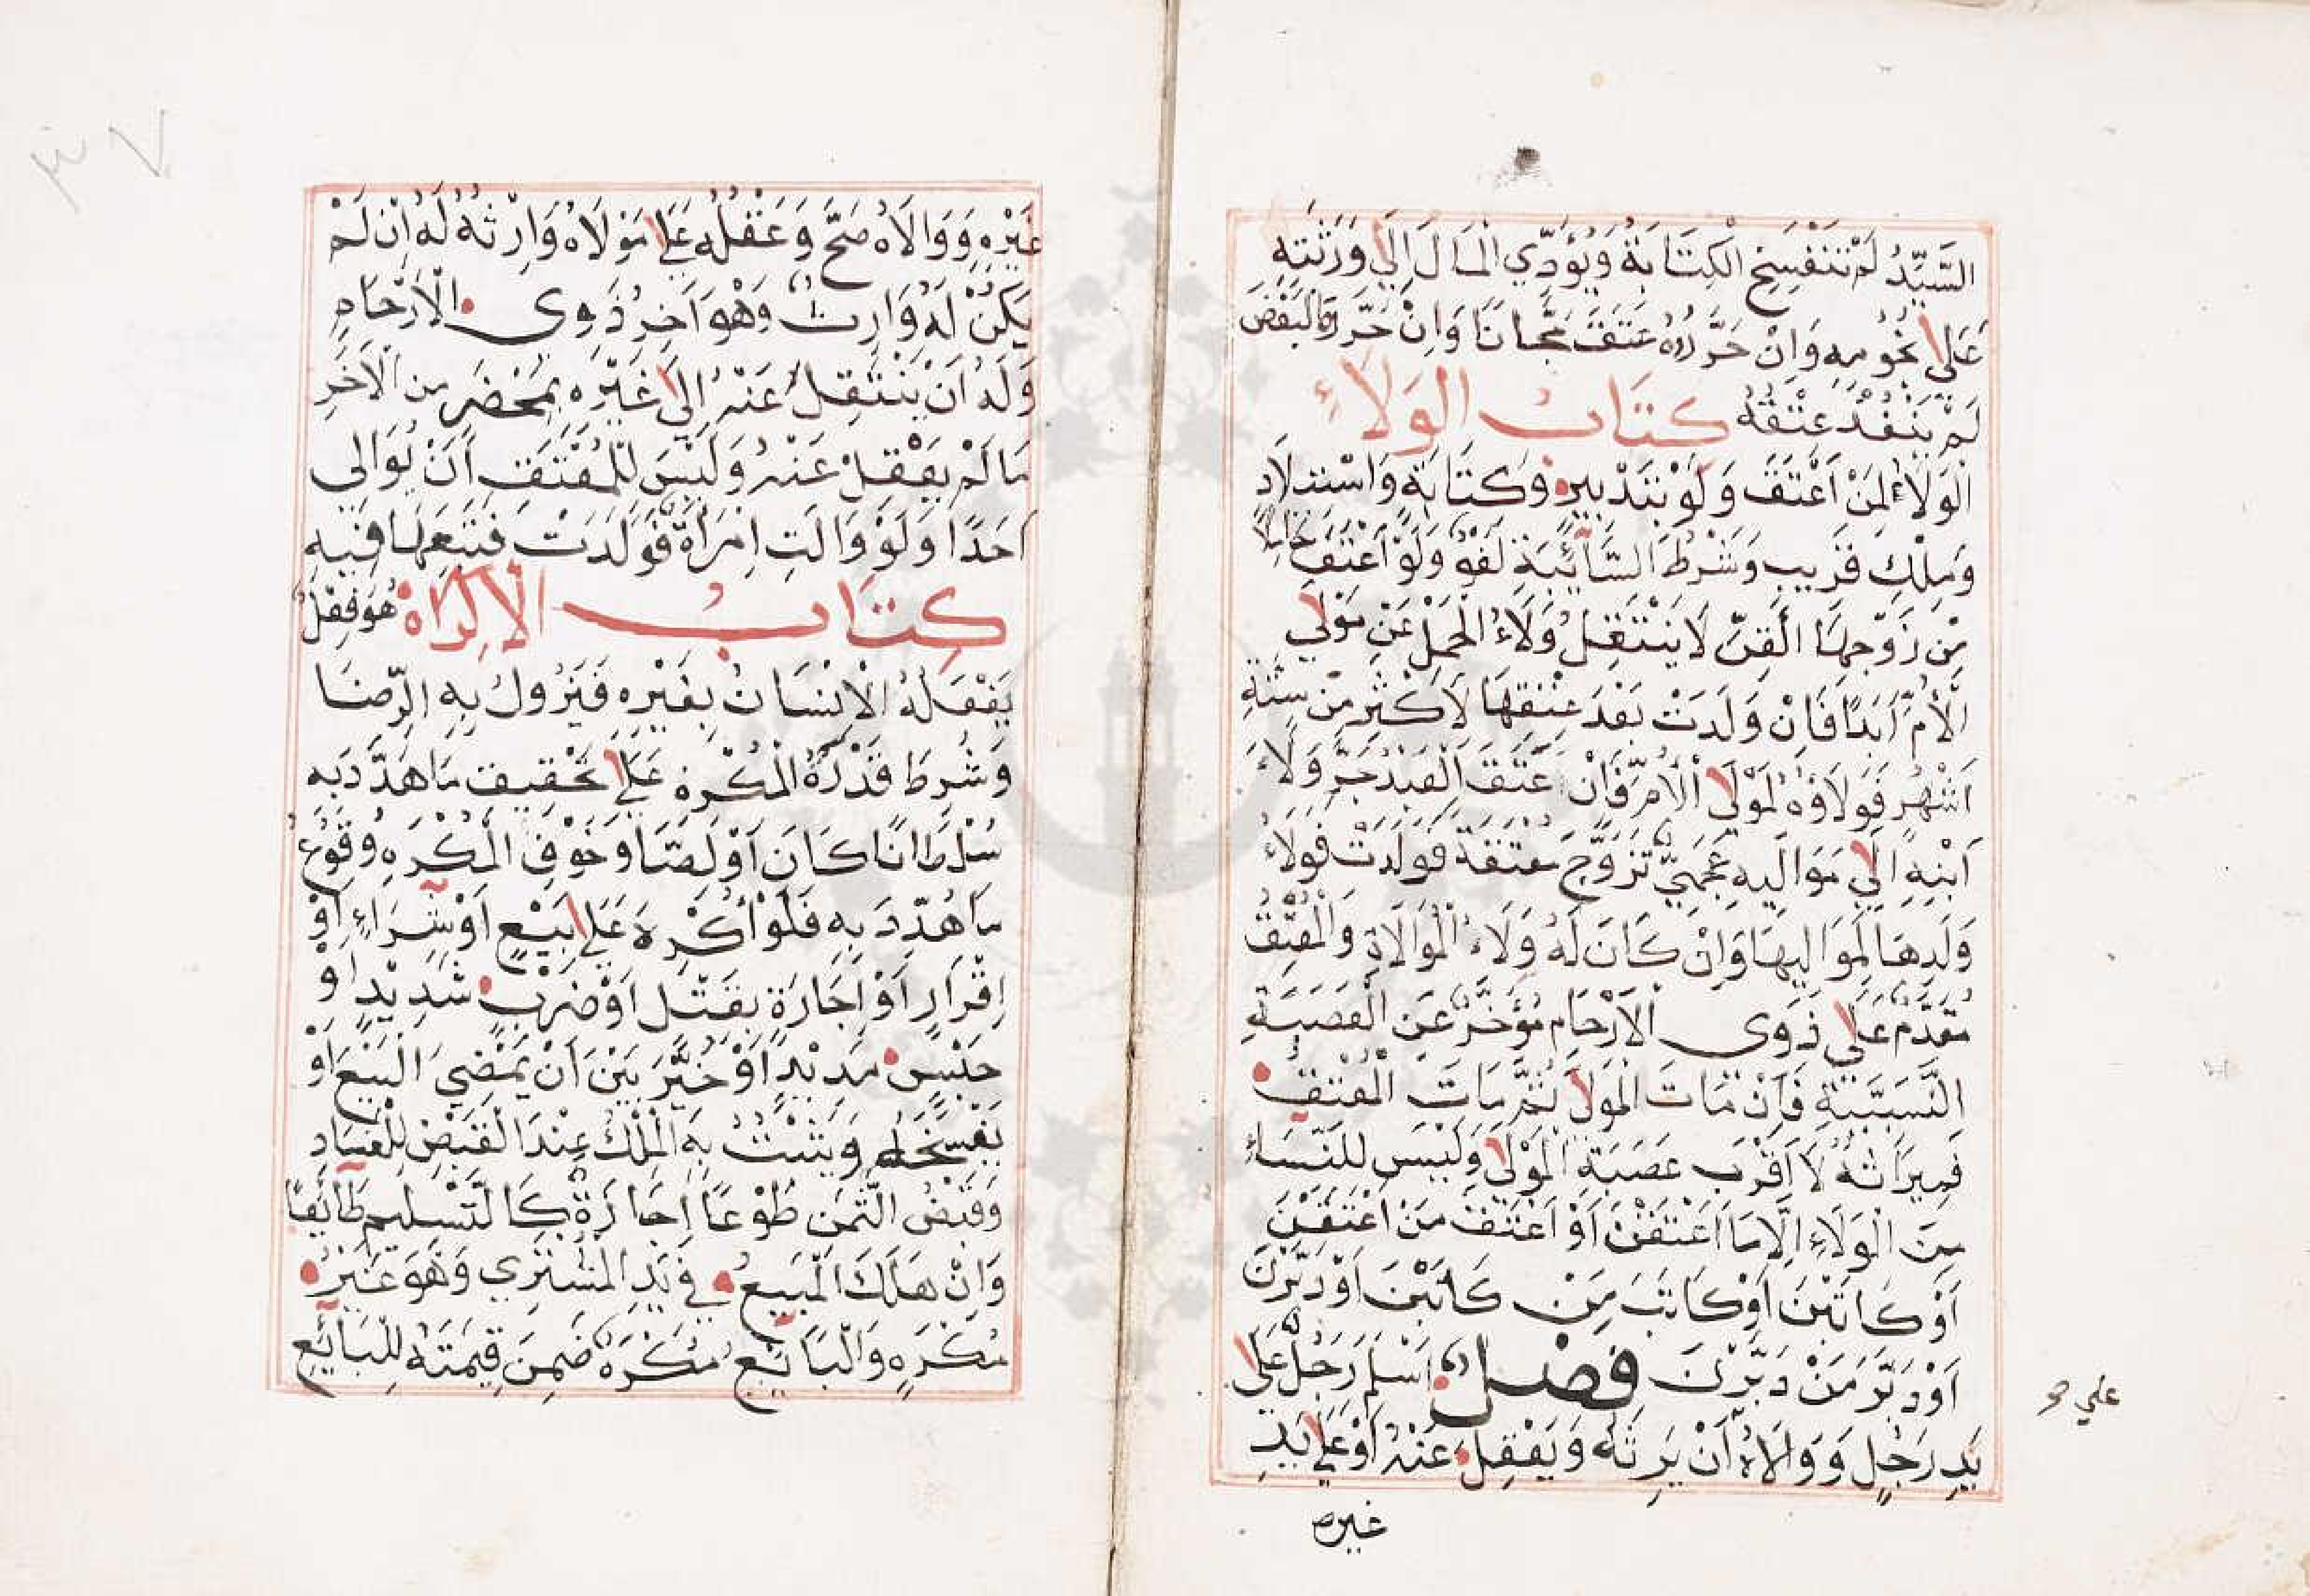 السَّيِّدُ لَمْ تَنْفَسِخِ الْكِتَابَةُ وَيُؤَدِّي الْمَالَ إِلَى وَرَثَتِهِ
عَلَى نُجُومِهِ وَإِنْ حَرَّرُوهُ عَتَقَ مَجَّانًا وَإِنْ حَرَّرَهُ الْبَعْضُ
لَمْ يَنْفُذْ عِتْقُهُ كِتَابُ الوَلَاءِ
الْوَلَاءُ لِمَنْ أَعْتَقَ وَلَوْ بِتَدْبِيرٍ وَكِتَابَةٍ وَاسْتِيلَادٍ
وَمِلْكِ قَرِيبٍ وَشَرْطُ السَّائِبَةِ لَغْوٌ وَلَوْ أَعْتَقَ حَامِلًا
مِنْ زَوْجِهَا الْقِنِّ لَا يَنْتَقِلُ وَلَاءُ الْحَمْلِ عَنْ مَوْلَى
الْأُمِّ أَبَدًا فَإِنْ وَلَدَتْ بَعْدَ عِتْقِهَا لِأَكْثَرَ مِنْ سِتَّةِ
أَشْهُرٍ فَوَلَاؤُهُ لِمَوْلَى الْأُمِّ فَإِنْ عَتَقَ الْعَبْدُ جَرَّ وَلَاءَ
ابْنِهِ إِلَى مَوَالِيهِ عَجَمِيٌّ تَزَوَّجَ مُعْتَقَةً فَوَلَدَتْ فَوَلَاءُ
وَلَدِهَا لِمَوَالِيهَا وَإِنْ كَانَ لَهُ وَلَاءُ الْمُوَالَاةِ وَالْمُعْتِقُ
مُقَدَّمٌ عَلَى ذَوِي الْأَرْحَامِ مُؤَخَّرٌ عَنِ الْعَصَبَةِ
النَّسَبِيَّةِ فَإِنْ مَاتَ الْمَوْلَى ثُمَّ مَاتَ الْمُعْتَقُ
فَمِيرَاثُهُ لِأَقْرَبِ عَصَبَةِ الْمَوْلَى وَلَيْسَ لِلنِّسَاءِ
مِنَ الْوَلَاءِ إِلَّا مَا أَعْتَقْنَ أَوْ أَعْتَقَ مَنْ أَعْتَقْنَ
أَوْ كَاتَبْنَ أَوْ كَاتَبَ مَنْ كَاتَبْنَ أَوْ دَبَّرْنَ
أَوْ دَبَّرَ مَنْ دَبَّرْنَ فَصْلٌ أَسْلَمَ رَجُلٌ عَلَى
يَدِ رَجُلٍ وَوَالَاهُ أَنْ يَرِثَهُ وَيَعْقِلَ عَنْهُ أَوْ عَلَى يَدِ
غيره
غَيْرِهِ وَوَالَاهُ صَحَّ وَعَقْلُهُ عَلَى مَوْلَاهُ وَإِرْثُهُ لَهُ إِنْ لَمْ
يَكُنْ لَهُ وَارِثٌ وَهْوَ آخِرُ ذَوِي الْأَرْحَامِ
وَلَهُ أَنْ يَنْتَقِلَ عَنْهُ إِلَى غَيْرِهِ بِمَحْضَرٍ مِنَ الْآخَرِ
مَا لَمْ يَعْقِلْ عَنْهُ وَلَيْسَ لِلْمُعْتَقِ أَنْ يُوَالِي
أَحَدًا وَلَوْ وَالَتِ امْرَأَةٌ فَوَلَدَتْ فَتَبِعَهَا فِيهِ
كِتَابُ الْإِكْرَاهِ هُوَ فِعْلٌ
يَفْعَلُهُ الْإِنْسَانُ بِغَيْرِهِ فَيَزُولُ بِهِ الرِّضَا
وَشُرِطَ قُدْرَةُ الْمُكْرِهِ عَلَى تَحْقِيقِ مَا هَدَّدَ بِهِ
سُلْطَانًا كَانَ أَوْ لِصًّا وَخَوْفُ الْمُكْرَهِ وُقُوعَ
مَا هُدِّدَ بِهِ فَلَوْ أُكْرِهَ عَلَى بَيْعٍ أَوْ شِرَاءٍ أَوْ
إِقْرَارٍ أَوْ إِجَارَةٍ بِقَتْلٍ أَوْ ضَرْبٍ شَدِيدٍ أَوْ
حَبْسٍ مَدِيدٍ أَوْ خُيِّرَ بَيْنَ أَنْ يَمْضِيَ الْبَيْعَ أَوْ
يَفْسَخَهُ وَيَثْبُتُ بِهِ الْمِلْكُ عِنْدَ الْقَبْضِ لِلْفَسَادِ
وَقَبْضُ الثَّمَنِ طَوْعًا إِجَازَةٌ كَالتَّسْلِيمِ طَائِعًا
وَإِنْ هَلَكَ الْمَبِيعُ فِي يَدِ الْمُشْتَرِي وَهْوَ غَيْرُ
مُكْرَهٍ وَالْبَائِعُ مُكْرَهٌ ضَمِنَ قِيمَتَهُ لِلْبَائِعِ
٣٧